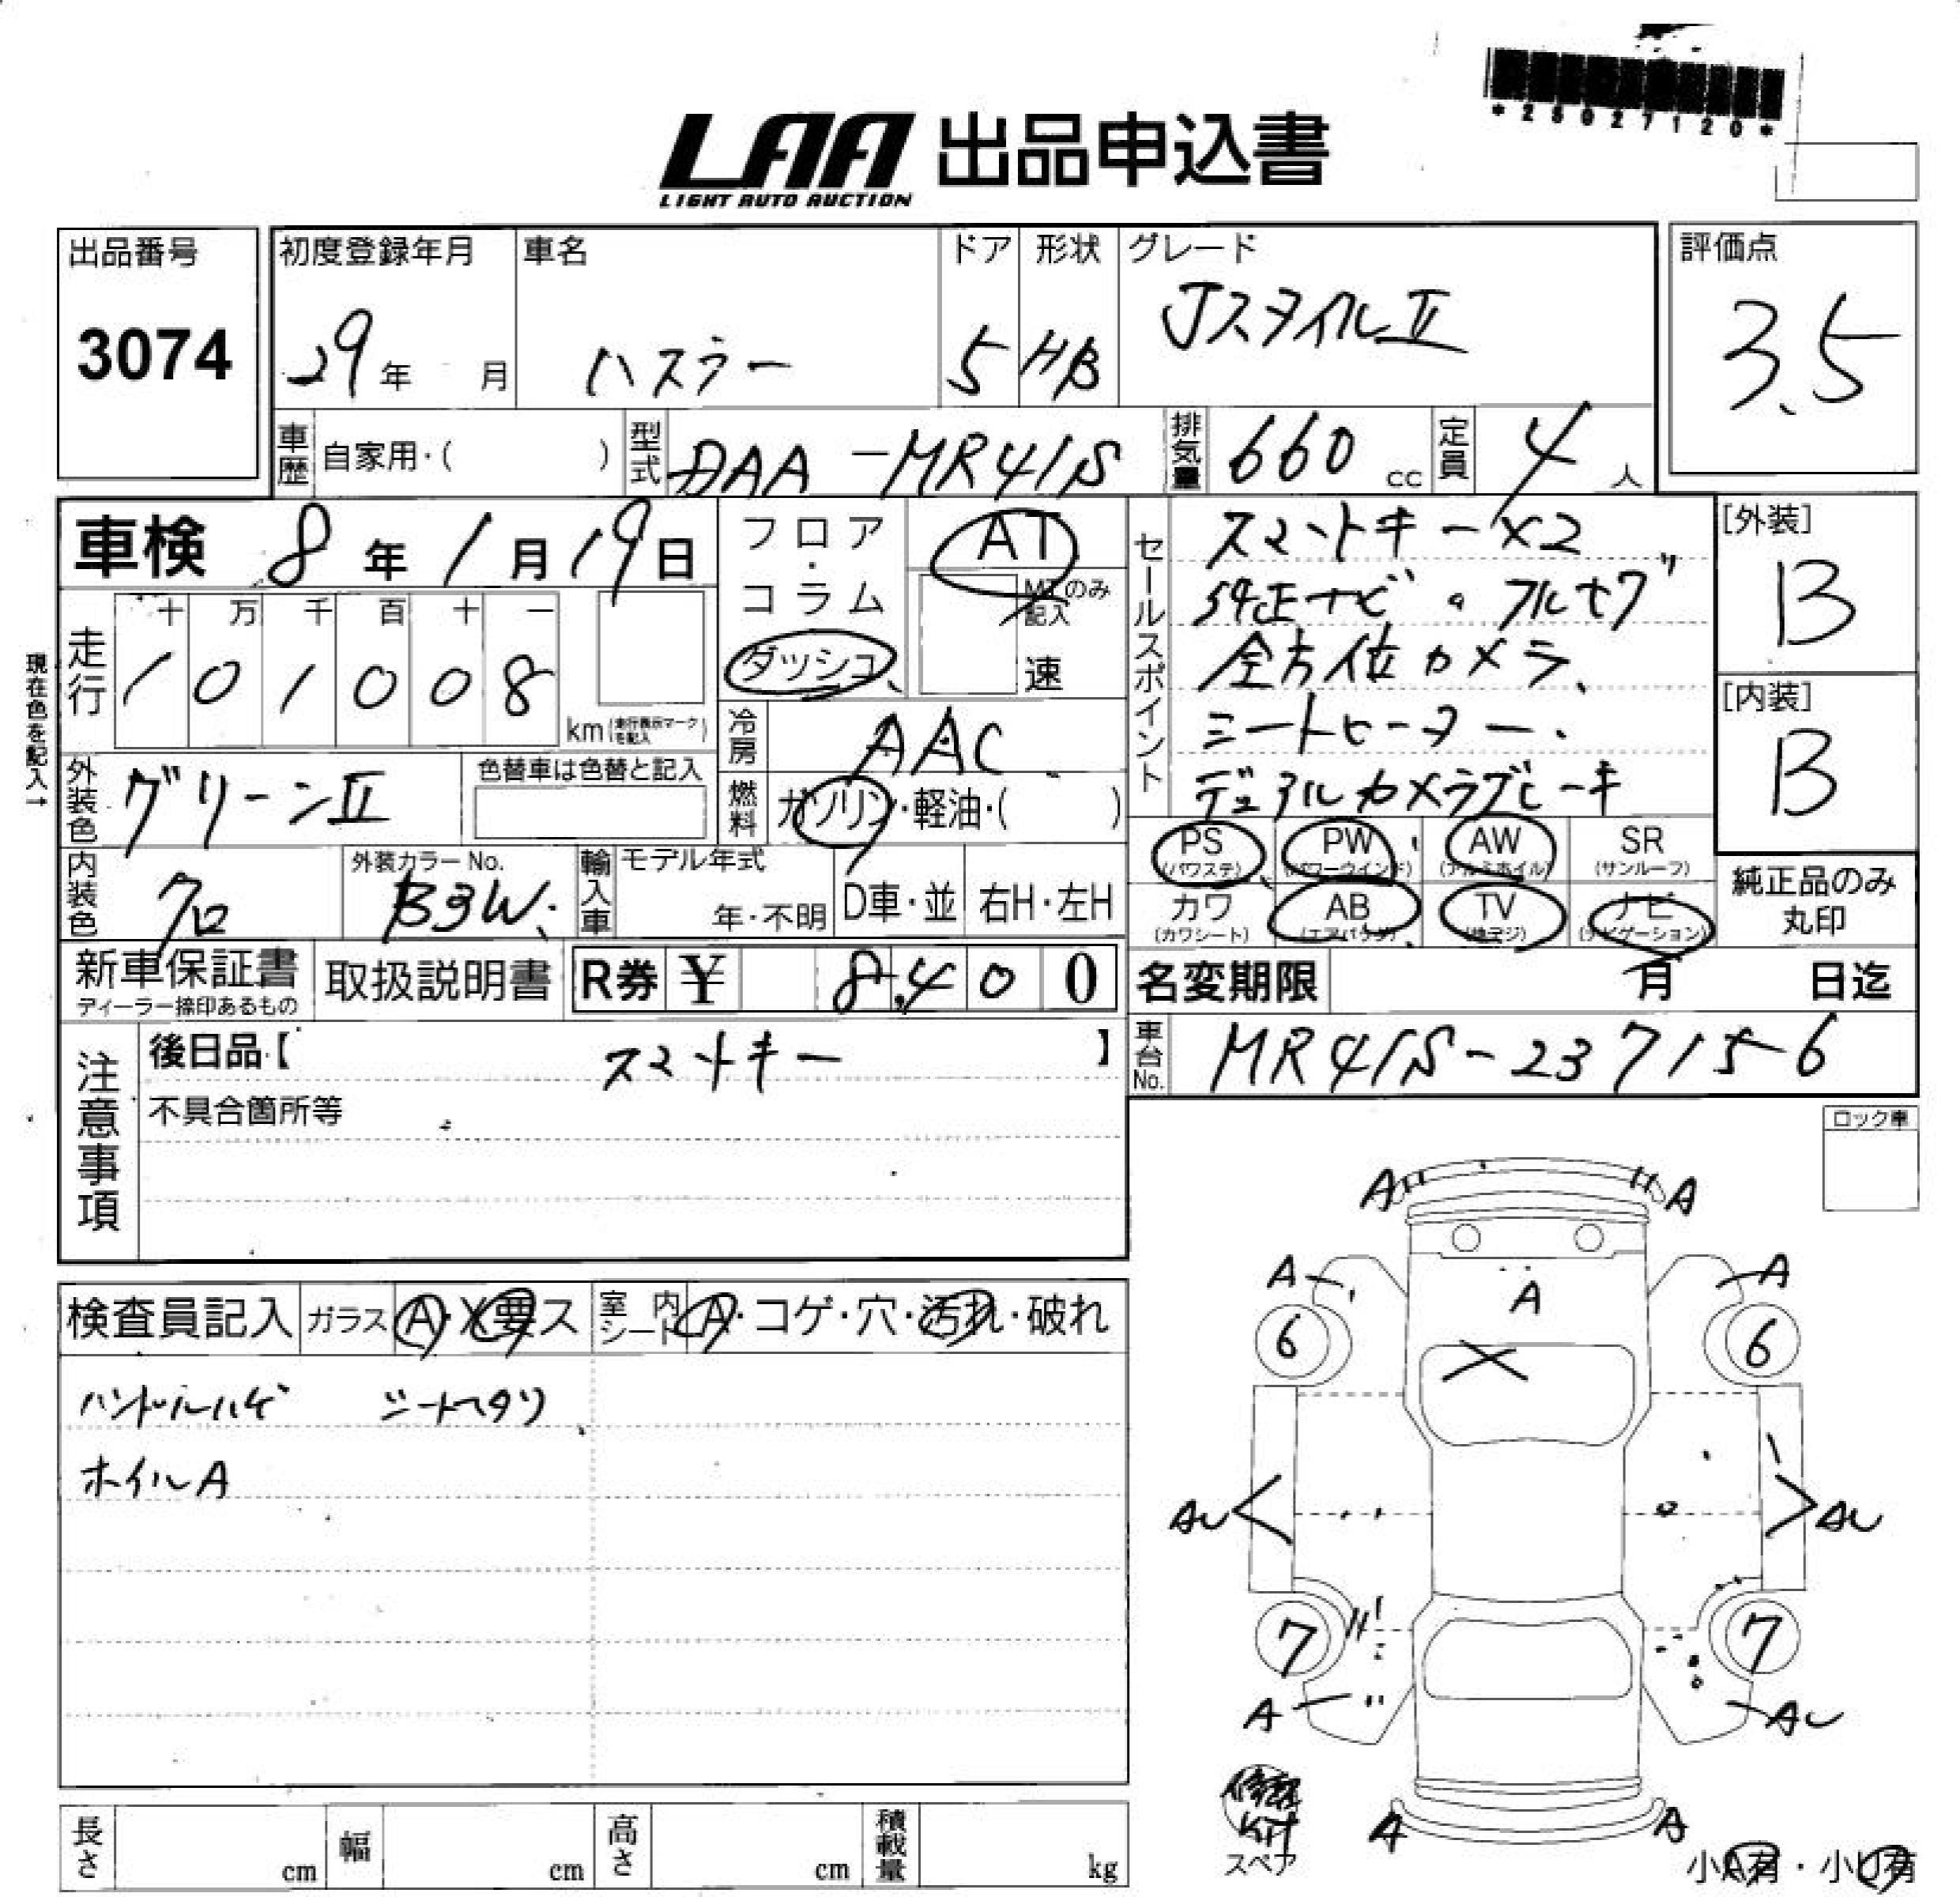 *25027120*
LAA 出品申込書
LIGHT AUTO AUCTION
出品番号
3074
初度登録年月
29年 月
車名
ハスラー
ドア
5
形状
HB
グレード
JスタイルⅡ
評価点
3.5
車歴 自家用・( )
型式 DAA-MR41S
排気量 660 cc
定員 4人
車検 8年1月19日
フロア・コラム
ダッシュ
AT
MTのみ記入
速
セールスポイント
スマートキー×2
純正ナビ。フルセグ
全方位カメラ、
シートヒーター、
デュアルカメラブレーキ
[外装]
B
[内装]
B
現在色を記入→
走行 十 万 千 百 十 一
1 0 1 0 0 8
km(走行表示マークを記入)
冷房 AAC
外装色 グリーンⅡ
色替車は色替と記入
燃料 ガソリン・軽油・( )
内装色 クロ
外装カラーNo.
B3W
輸入車 モデル年式
年・不明
D車・並 右H・左H
PS (パワステ)
PW (パワーウインド)
AW (アルミホイル)
SR (サンルーフ)
カワ (カワシート)
AB (エアバック)
TV (地デジ)
ナビ (ナビゲーション)
純正品のみ
丸印
新車保証書
ディーラー捺印あるもの
取扱説明書
R券 ¥ 8,400
名変期限 月 日迄
注意事項
後日品【 スマートキー 】
不具合箇所等
車台No. MR41S-237156
ロック車
検査員記入
ガラス A・X要ス
室内シート A・コゲ・穴・汚れ・破れ
ハンドルハゲ シートヘタリ
ホイルA
A A
A A
A
6 6
X
AU AU
7 7
A AU
A A
修理
Kit
スペア
小A有・小U有
長さ cm
幅 cm
高さ cm
積載量 kg